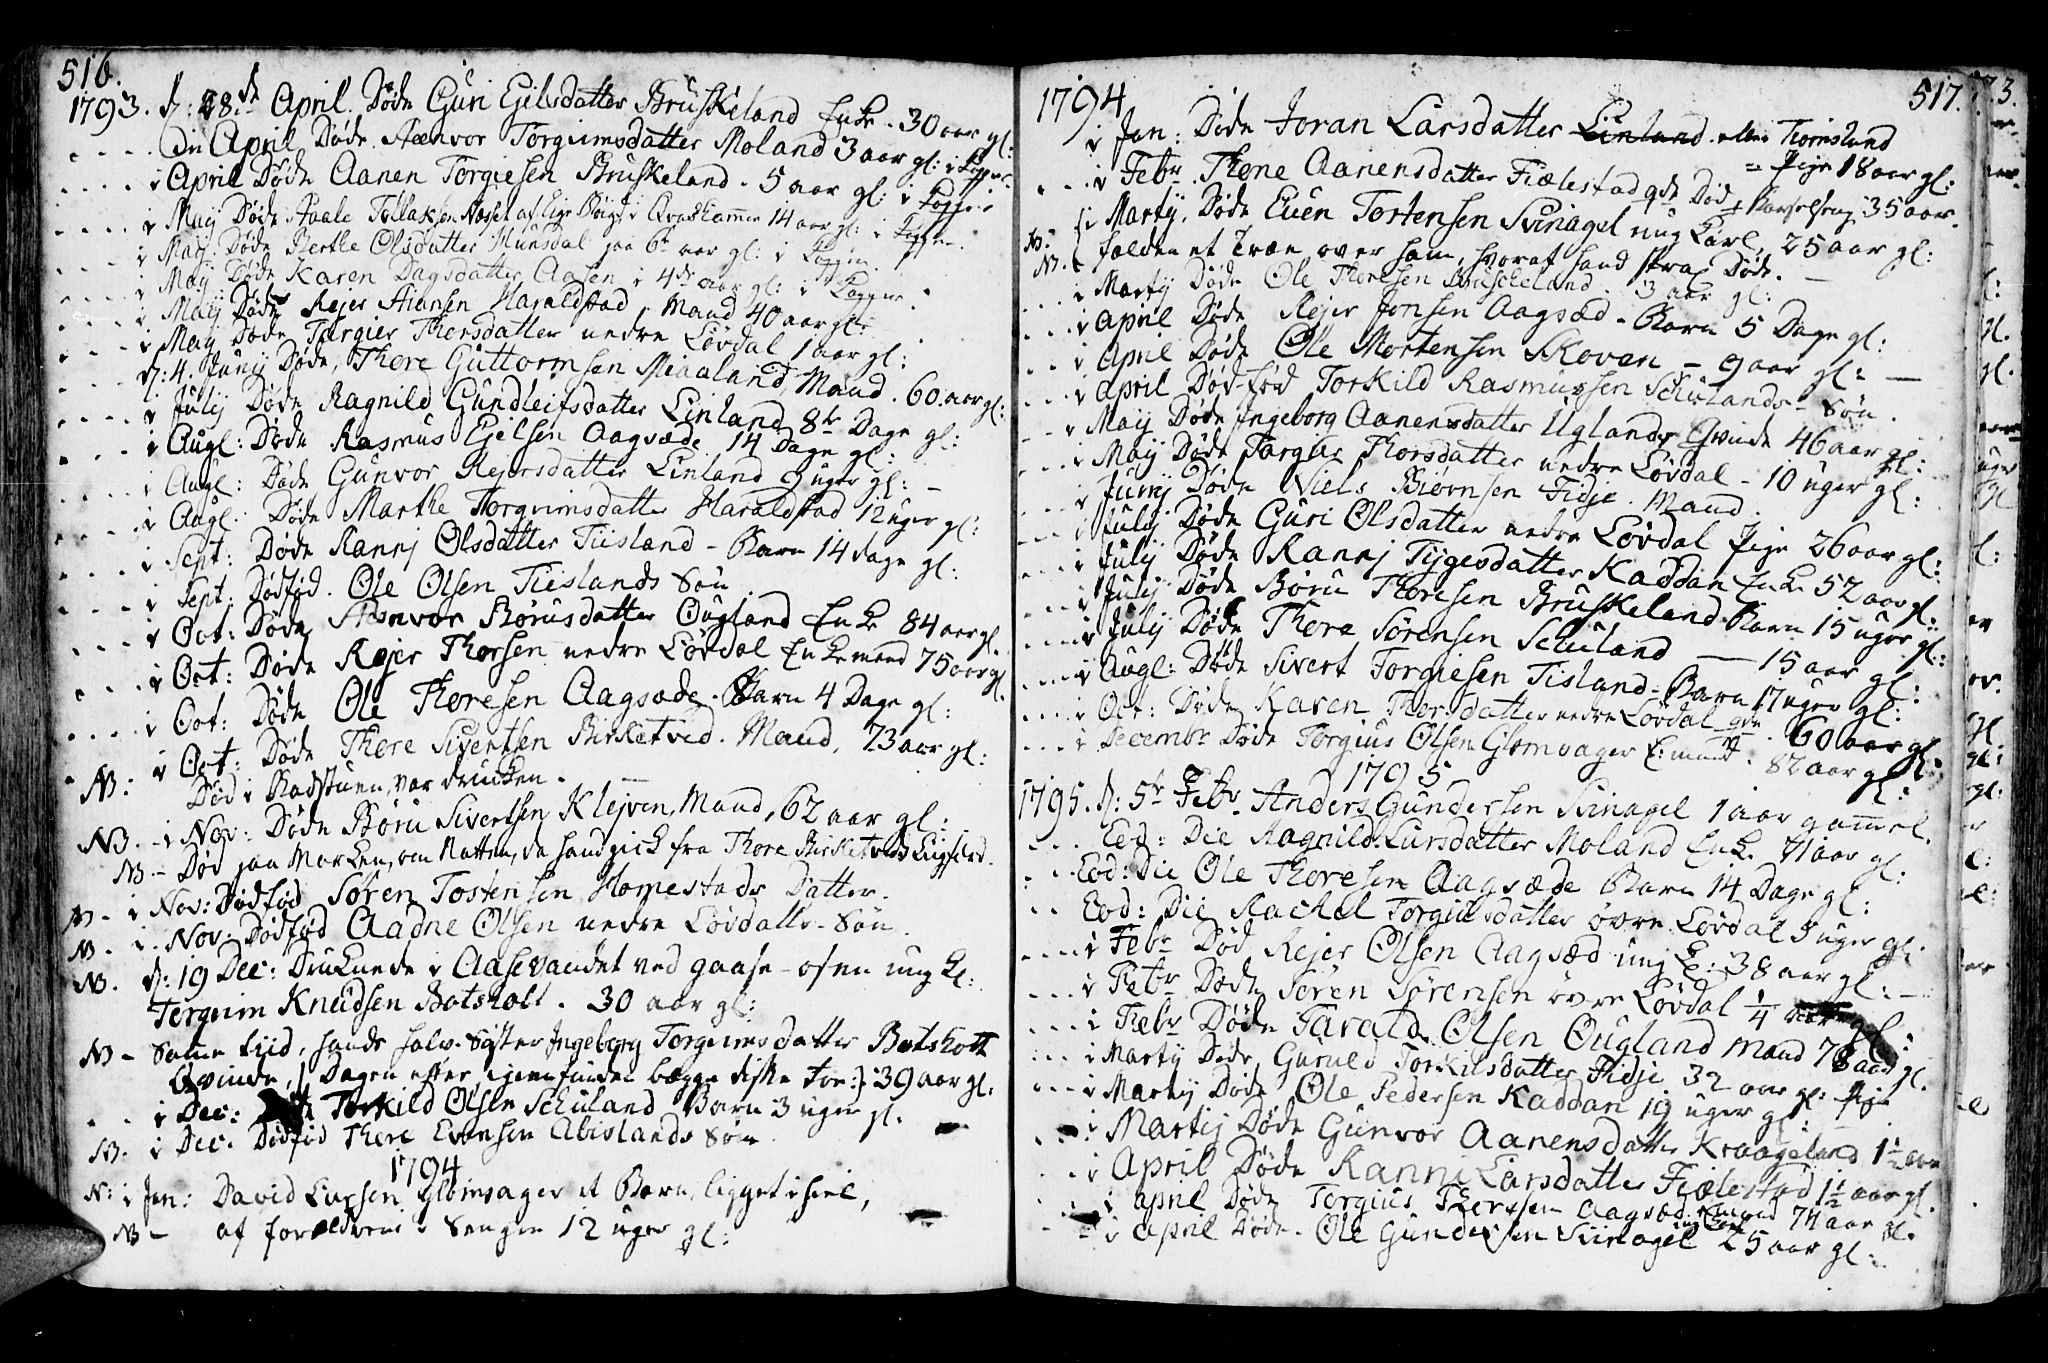 516.
1793. d: 28de April. Døde Guri Ejelsdatter Bruskeland Enke. 30 aar gl:
Din April Døde Aenvor Torgrimsdatter Moland 3 aar gl: i Kopper
i April Døde Aanen Torgiesen Bruskeland. 5 aar gl: i Kopper
i Maij Døde Aale Tollaksen Næsset af Eige Bøigd i Qvaskammer 14 aar gl: i Kopper.
i Maij. Døde Berthe Olsdatter Hunsdal paa 6te aar gl: i Kopper.
i Maij Døde Karen Dagsdatter Aasen i 4de aar gl: i Kopper.
i Maij Døde Rejer Hansen Haraldstad, Mand 40 aar gl:
i Maij Døde Torgier Thorsdatter nedre Løvdal 1 aar gl:
d: 4. Junij Døde, Thore Guttormsen Miaaland Mand. 60. aar gl:
i Julij Døde Ragnild Gundleifsdatter Linland 8te Dage gl:
i Augl: Døde Rasmus Ejelsen Aagsæde 14 Dage gl:
i Augl: Døde Gunvor Rejersdatter Linland 9 uger gl: -
i Augl. Døde Marthe Torgrimsdatter Haraldstad 12 uger gl:
i Sept: Døde Rannj Olsdatter Tiisland - Barn 14 dage gl:
i Sept: Dødfød. Ole Olsen Tiislands Søn
i Oct: Døde Aenvor Børusdatter Ougland Enke 84 aar gl.
i Oct: Døde Rejer Thorsen nedre Løvdal Enkemand 75 aar gl.
i Oct: Døde Ole Thoresen Aagsæde. Barn 4 Dage gl:
i Oct: Døde Thore Sivertsen Birketved. Mand, 73 aar gl:
NB: Død i Badstuen, var drucken.
NB. - i Nov: Døde Børu Sivertsen Klejven, Mand, 62 aar gl:
NB - Død paa Marken, om Natten, da hand gick fra Thore Birketveds Liigfærd.
NB - i Nov: Dødfød Søren Tostensen Homestads Datter.
NB. i Nov: Dødfød Aadne Olsen nedre Løvdals - Søn.
NB. d: 19 Dec: Druknede i Aasevandet ved gaase-osen ung K:
Torgrim Knudsen Botsholt. 30 aar gl:
NB - Samme tiid, hands halv-Søster Ingeborg Torgrimsdatter Botsholt
Qvinde, Dagen efter igjenfunden begge diste toe:) 39 aar gl:
i Dec: Torkild Olsen Schuland Barn 3 uger gl.
NB. i Dec. Dødfød Thore Evensen Abislands Søn
1794
N: i Jan: David Larsen Glomsager et Barn, ligget ihiel,
NB - af forældrene i Sengen 12 uger gl:
517.
1794
i Jan: Døde Joran Larsdatter Linland eller Tiomsland
= Pige 18 aar gl:
i Febr. Thone Aanensdatter Fiælestad gdk Død i Barselseng 35 aar.
NB: i Martij, Døde Even Tortensen Svinagel ung Karl, 25 aar gl:
NB. falden et Træe over ham, hvoraf hand strax Døde.
i Martij Døde Ole Thoresen Bruscheland. 3 aar gl:
i April Døde Rejer Jonsen Aagsæd - Barn 5 Dage gl:
i April Døde Ole Mortensen Skoven - 9 aar gl: -
i April Død-fød Torkild Rasmussen Schulands - Søn.
i Maij Døde Ingeborg Aanensdatter Uglands Qvinde 46 aar gl:
i Maij Døde Torgier Thorsdatter nedre Løvdal - 10 uger gl:
i Junij Døde Niels Biørnsen Fidje. Mand.
i Julij Døde Guri Olsdatter nedre Løvdal Pige 26 aar gl:
i Julij Døde Rannj Tygesdatter Kaddan Enke 52 aar gl:
i Julij Døde Børu Thoresen Bruskeland Barn 15 uger gl:
i Julij Døde Thore Sørensen Schuland - 15 aar gl:
i Augl: Døde Sivert Torgiesen Tisland - Barn 17 uger gl:
i Oct: Døde Karen Thorsdatter nedre Løvdal gdk. 60 aar gl:
i Decembr Døde Torgius Olsen Glomsager E:mand. 82 aar gl:
1795
1795. d: 5te Febr Anders Gundersen Svinagel 1 aar gammel.
Eod: Die Ragnild Larsdatter Moland Enke 71 aar gl:
Eod: Die Ole Thoresen Aagsæde Barn 14 Dage gl:
Eod: Die Rachel Torgiusdatter øvre Løvdal 5 uger gl.
i Febr Død Rejer Olsen Aagsæd ung K: 38 aar gl: -
i Febr Døde Søren Sørensen øvre Løvdal 1/4 gl:
i Febr Døde Tarald Olsen Ougland Mand 78 aar gl.
i Martij Døde, Guruld Torkilsdatter Fidje 32 aar gl: Pige
i Martij Døde Ole Pedersen Kaddan 19 uger gl: -
i Martij Døde Gunvor Aanensdatter Kraageland 1 1/2 aar
i April Døde Ranni Larsdatter Fiælestad 1 1/2 aar gl.
i april Døde Torgius Thorssen Aagsæd Emand 74 aar gl.
i April Døde. Ole Gundersen Svinagel ung Karl 25 aar gl: